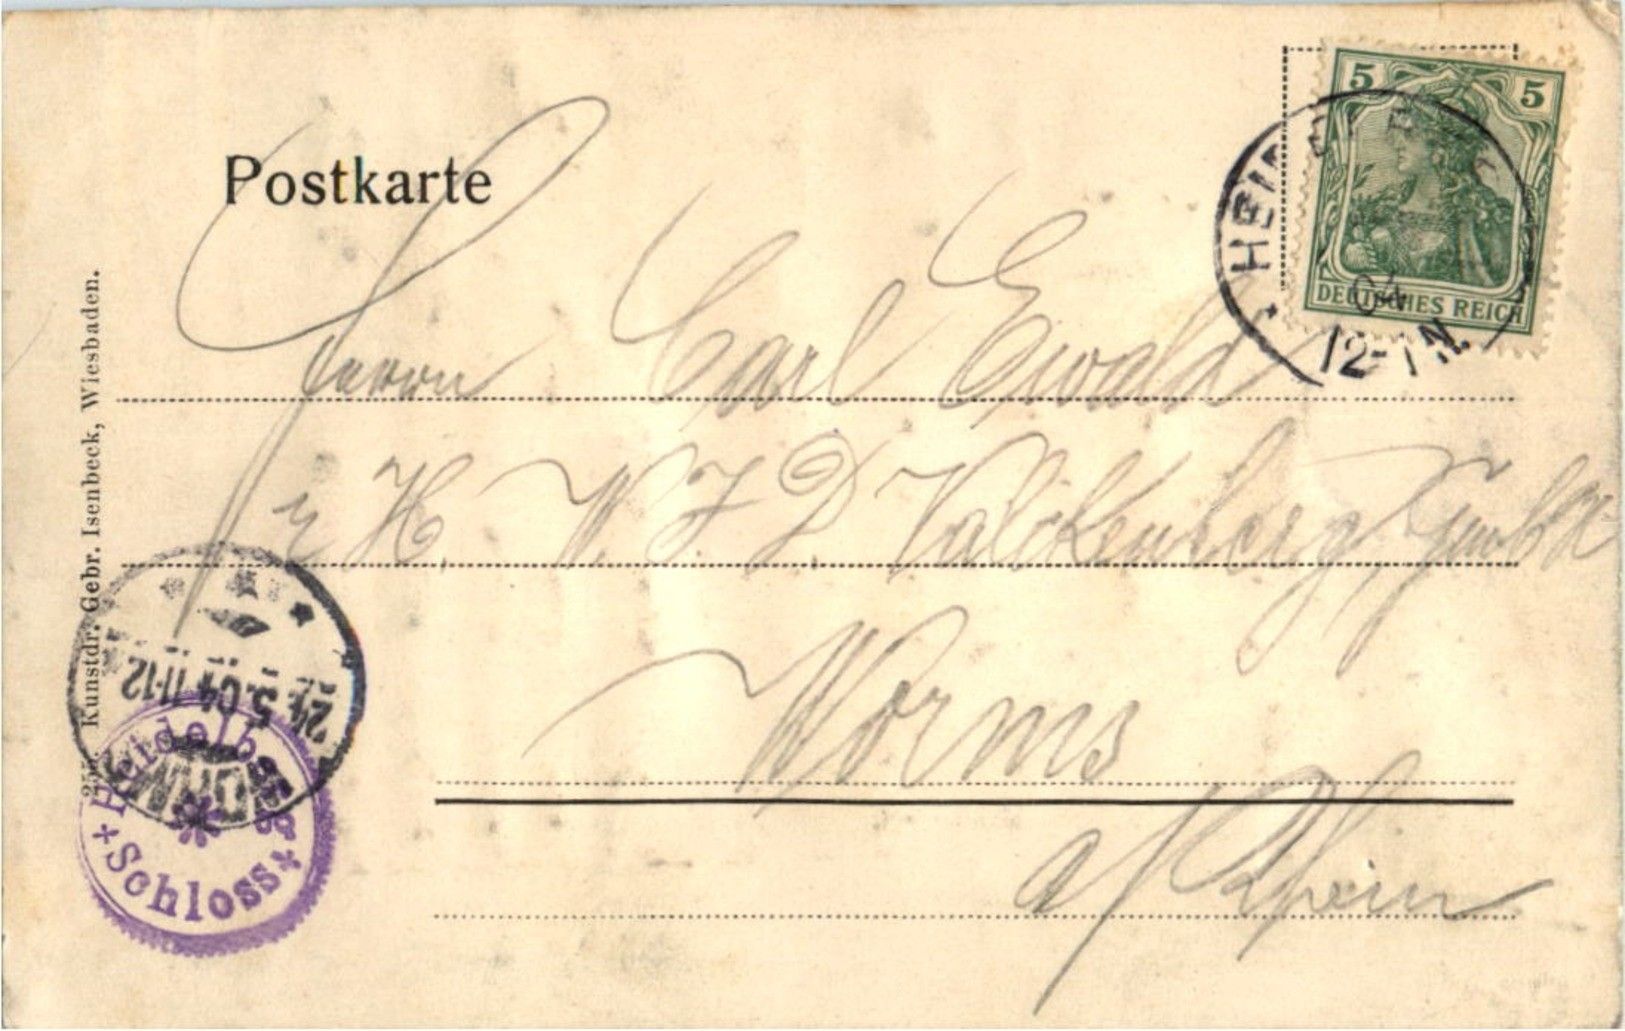 Postkarte
5 5
DEUTSCHES REICH
HEIDELBERG
04
12-1 N.
Herrn Carl Ewald
z. H. W. J. D. Valckenberg, GmbH
Worms
a/Rhein
Kunstdr. Gebr. Isenbeck, Wiesbaden.
WORMS
24.5.04 11-12
Heidelberg
Schloss